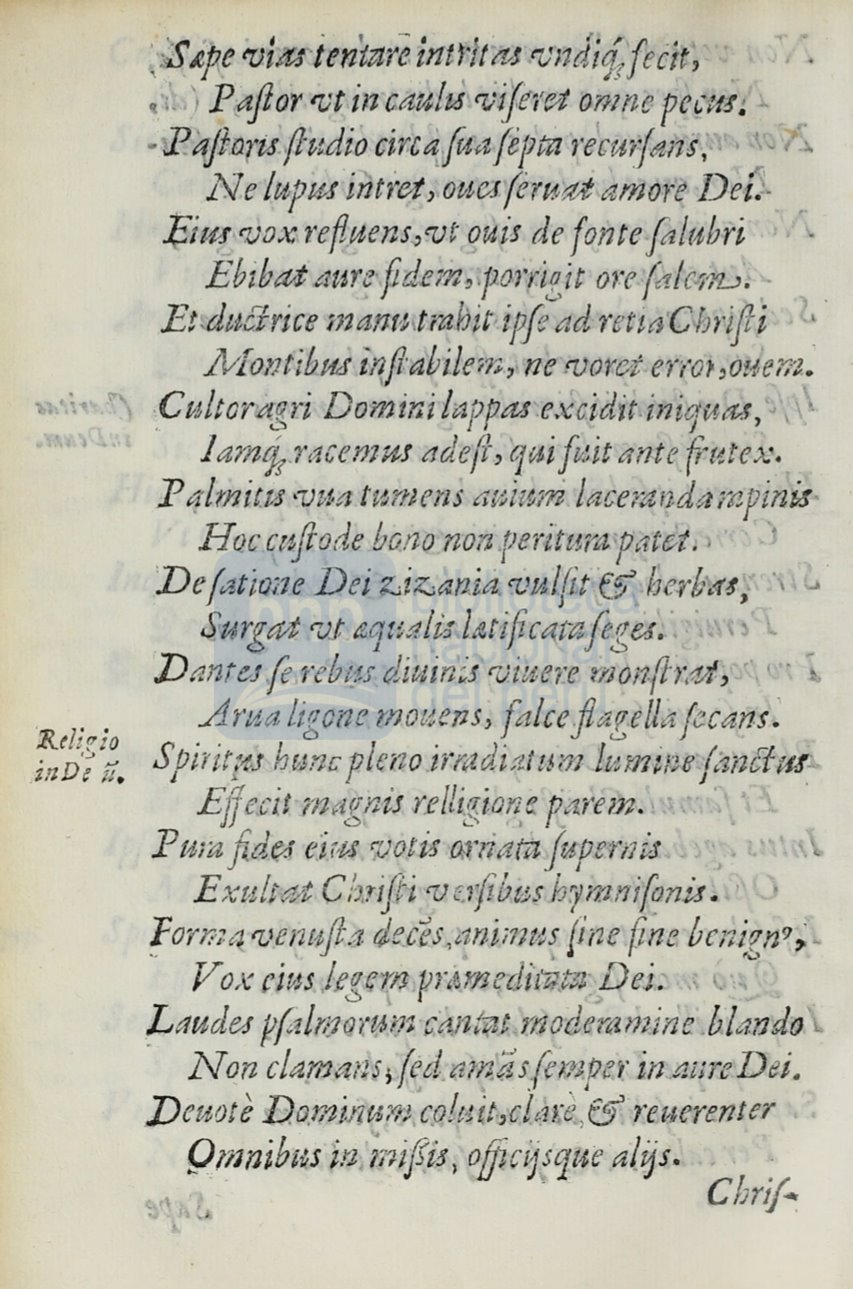 Sæpe vias tentare intritas vndiq́; fecit,
Paſtor vt in caulis viſeret omne pecus.
Paſtoris ſtudio circa ſua ſepta recurſans,
Ne lupus intret, oues ſeruat amore Dei.
Eius vox refluens, vt ouis de fonte ſalubri
Ebibat aure fidem, porrigit ore ſalem.
Et ductrice manu trahit ipſe ad retia Chriſti
Montibus inſtabilem, ne voret error, ouem.
Cultor agri Domini lappas excidit iniquas,
Iamq́; racemus adeſt, qui fuit ante frutex.
Palmitis vua tumens auium laceranda rapinis
Hoc cuſtode bono non peritura patet.
De ſatione Dei zizania vulſit & herbas,
Surgat vt æqualis lætificata ſeges.
Dantes ſe rebus diuinis viuere monſtrat,
Arua ligone mouens, falce flagella ſecans.
Religio
in Deũ.
Spiritus hunc pleno irradiatum lumine ſanctus
Effecit magnis relligione parem.
Pura fides eius votis ornata ſupernis
Exultat Chriſti verſibus hymniſonis.
Forma venuſta decẽs, animus ſine fine benignꝰ,
Vox eius legem præmeditata Dei.
Laudes pſalmorum cantat moderamine blando
Non clamans, ſed amãs ſemper in aure Dei.
Deuotè Dominum coluit, clarè, & reuerenter
Omnibus in miſſis, officijsque alijs.
Chriſ-